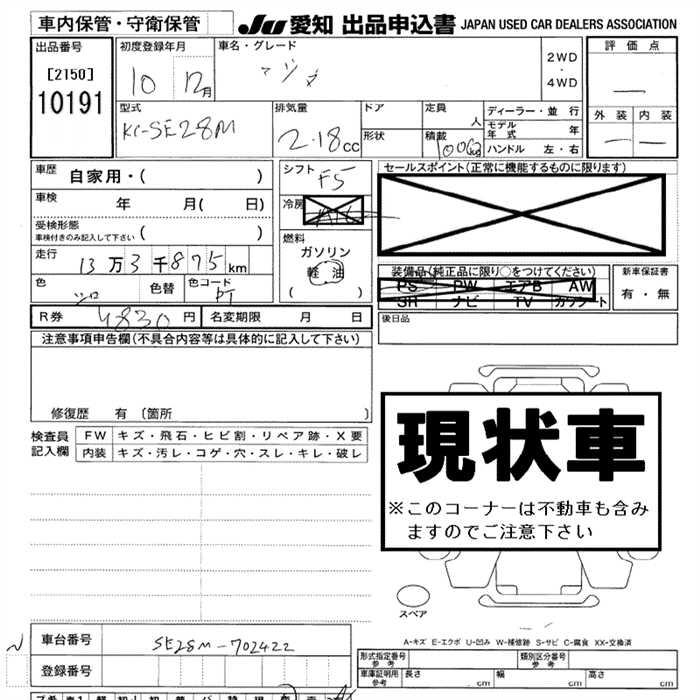 車内保管・守衛保管
JU 愛知 出品申込書 JAPAN USED CAR DEALERS ASSOCIATION
出品番号
[2150]
10191
初度登録年月
10 12月
車名・グレード
マツダ
2WD
・
4WD
評価点
外装 内装
型式
KC-SE28M
排気量
2.18cc
ドア
形状
定員
人
積載
1000kg
ディーラー・並行
モデル年式 年
ハンドル 左・右
車歴
自家用・( )
車検
年 月( 日)
受検形態
車検付きのみ記入して下さい ( )
走行
13万3千875km
色
シロ
色替
色コード
PT
シフト
F5
冷房
燃料
ガソリン
軽油
( )
セールスポイント(正常に機能するものに限ります)
装備品(純正品に限り○をつけてください)
PS PW エアB AW
SR ナビ TV カワシート
新車保証書
有・無
R券 4830円 名変期限 月 日
後日品
注意事項申告欄(不具合内容等は具体的に記入して下さい)
修復歴 有〔箇所 〕
検査員記入欄
FW キズ・飛石・ヒビ割・リペア跡・X要
内装 キズ・汚レ・コゲ・穴・スレ・キレ・破レ
現状車
※このコーナーは不動車も含み
ますのでご注意下さい
スペア
A-キズ E-エクボ U-凹み W-補修跡 S-サビ C-腐食 XX-交換済
車台番号 SE28M-702422
登録番号
形式指定番号 参考
類別区分番号 参考
車庫証明用 参考 長さ cm 幅 cm 高さ cm